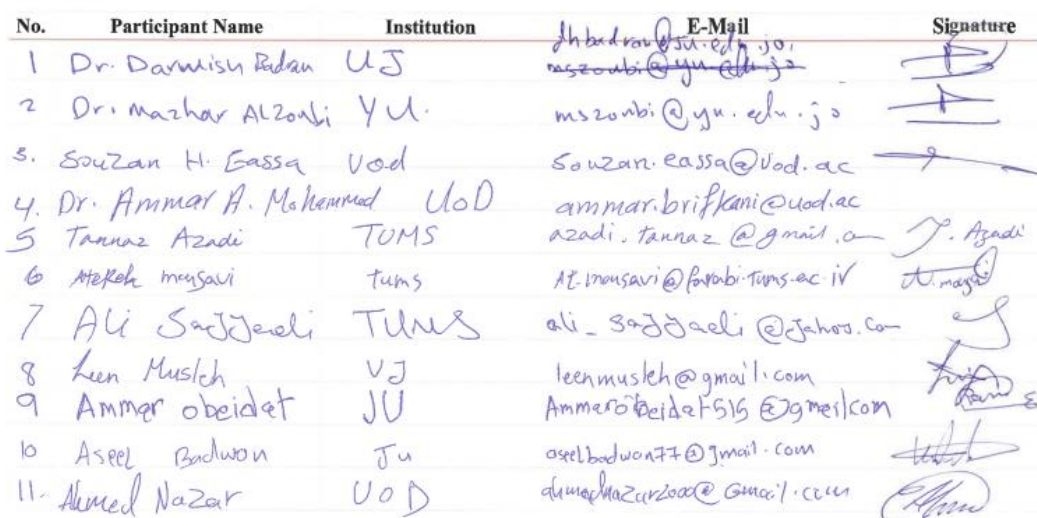 No. Participant Name Institution E-Mail Signature
1 Dr. Darwish Badran UJ dhbadran@ju.edu.jo,
mszoubi@yu.edu.jo
2 Dr. Mazhar Al Zoubi YU. mszoubi@yu.edu.jo
3. Souzan H. Eassa Uod Souzan.eassa@Uod.ac
4. Dr. Ammar A. Mohammed UoD ammar.brifkani@uod.ac
5 Tannaz Azadi TUMS azadi.tannaz@gmail. T. Azadi
6 Atekeh mousavi tums At.mousavi@farabi.tums.ac.ir
7 Ali Sajjadi TUMS ali_sajjadi@yahoo.com
8 Leen Musleh UJ leenmusleh@gmail.com
9 Ammar obeidat JU Ammarobeidat515@gmail.com
10 Aseel Badwon Ju aseelbadwan77@gmail.com
11. Ahmed Nazar UOD ahmednazar2000@Gmail.com